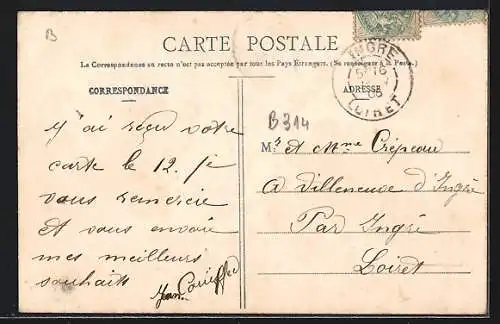 B
CARTE POSTALE
La Correspondance au recto n'est pas acceptée par tous les Pays Etrangers. (Se renseigner à la Poste.)
CORRESPONDANCE
ADRESSE
INGRÉ
16
06
LOIRET
B 314
J'ai reçu votre
carte le 12. je
vous remercie
et vous envoie
mes meilleurs
souhaits
Jean
Mr et Mme Crépeau
A Villeneuve d'Ingré
Par Ingré
Loiret